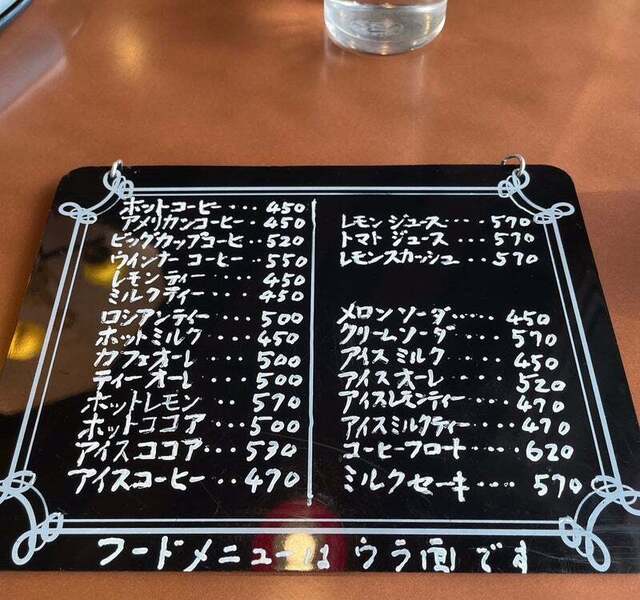 ホットコーヒー・・・450
アメリカンコーヒー・・450
ビッグカップコーヒ・・520
ウインナー コーヒー・・550
レモンティー・・・・450
ミルクティー・・・・450
ロシアンティー・・・500
ホットミルク・・・・450
カフェオーレ・・・500
ティーオーレ・・・500
ホットレモン・・・570
ホットココア・・・500
アイスココア・・・530
アイスコーヒー・・470
レモン ジュース・・・・570
トマト ジュース・・・・570
レモンスカッシュ・・・570
メロン ソーダ・・・・・450
クリームソーダ・・・・570
アイス ミルク・・・・・450
アイス オーレ・・・・・520
アイスレモンティー・・・470
アイスミルクティー・・・470
コーヒーフロート・・・・620
ミルク セーキ・・・・570
フードメニューは ウラ面 です